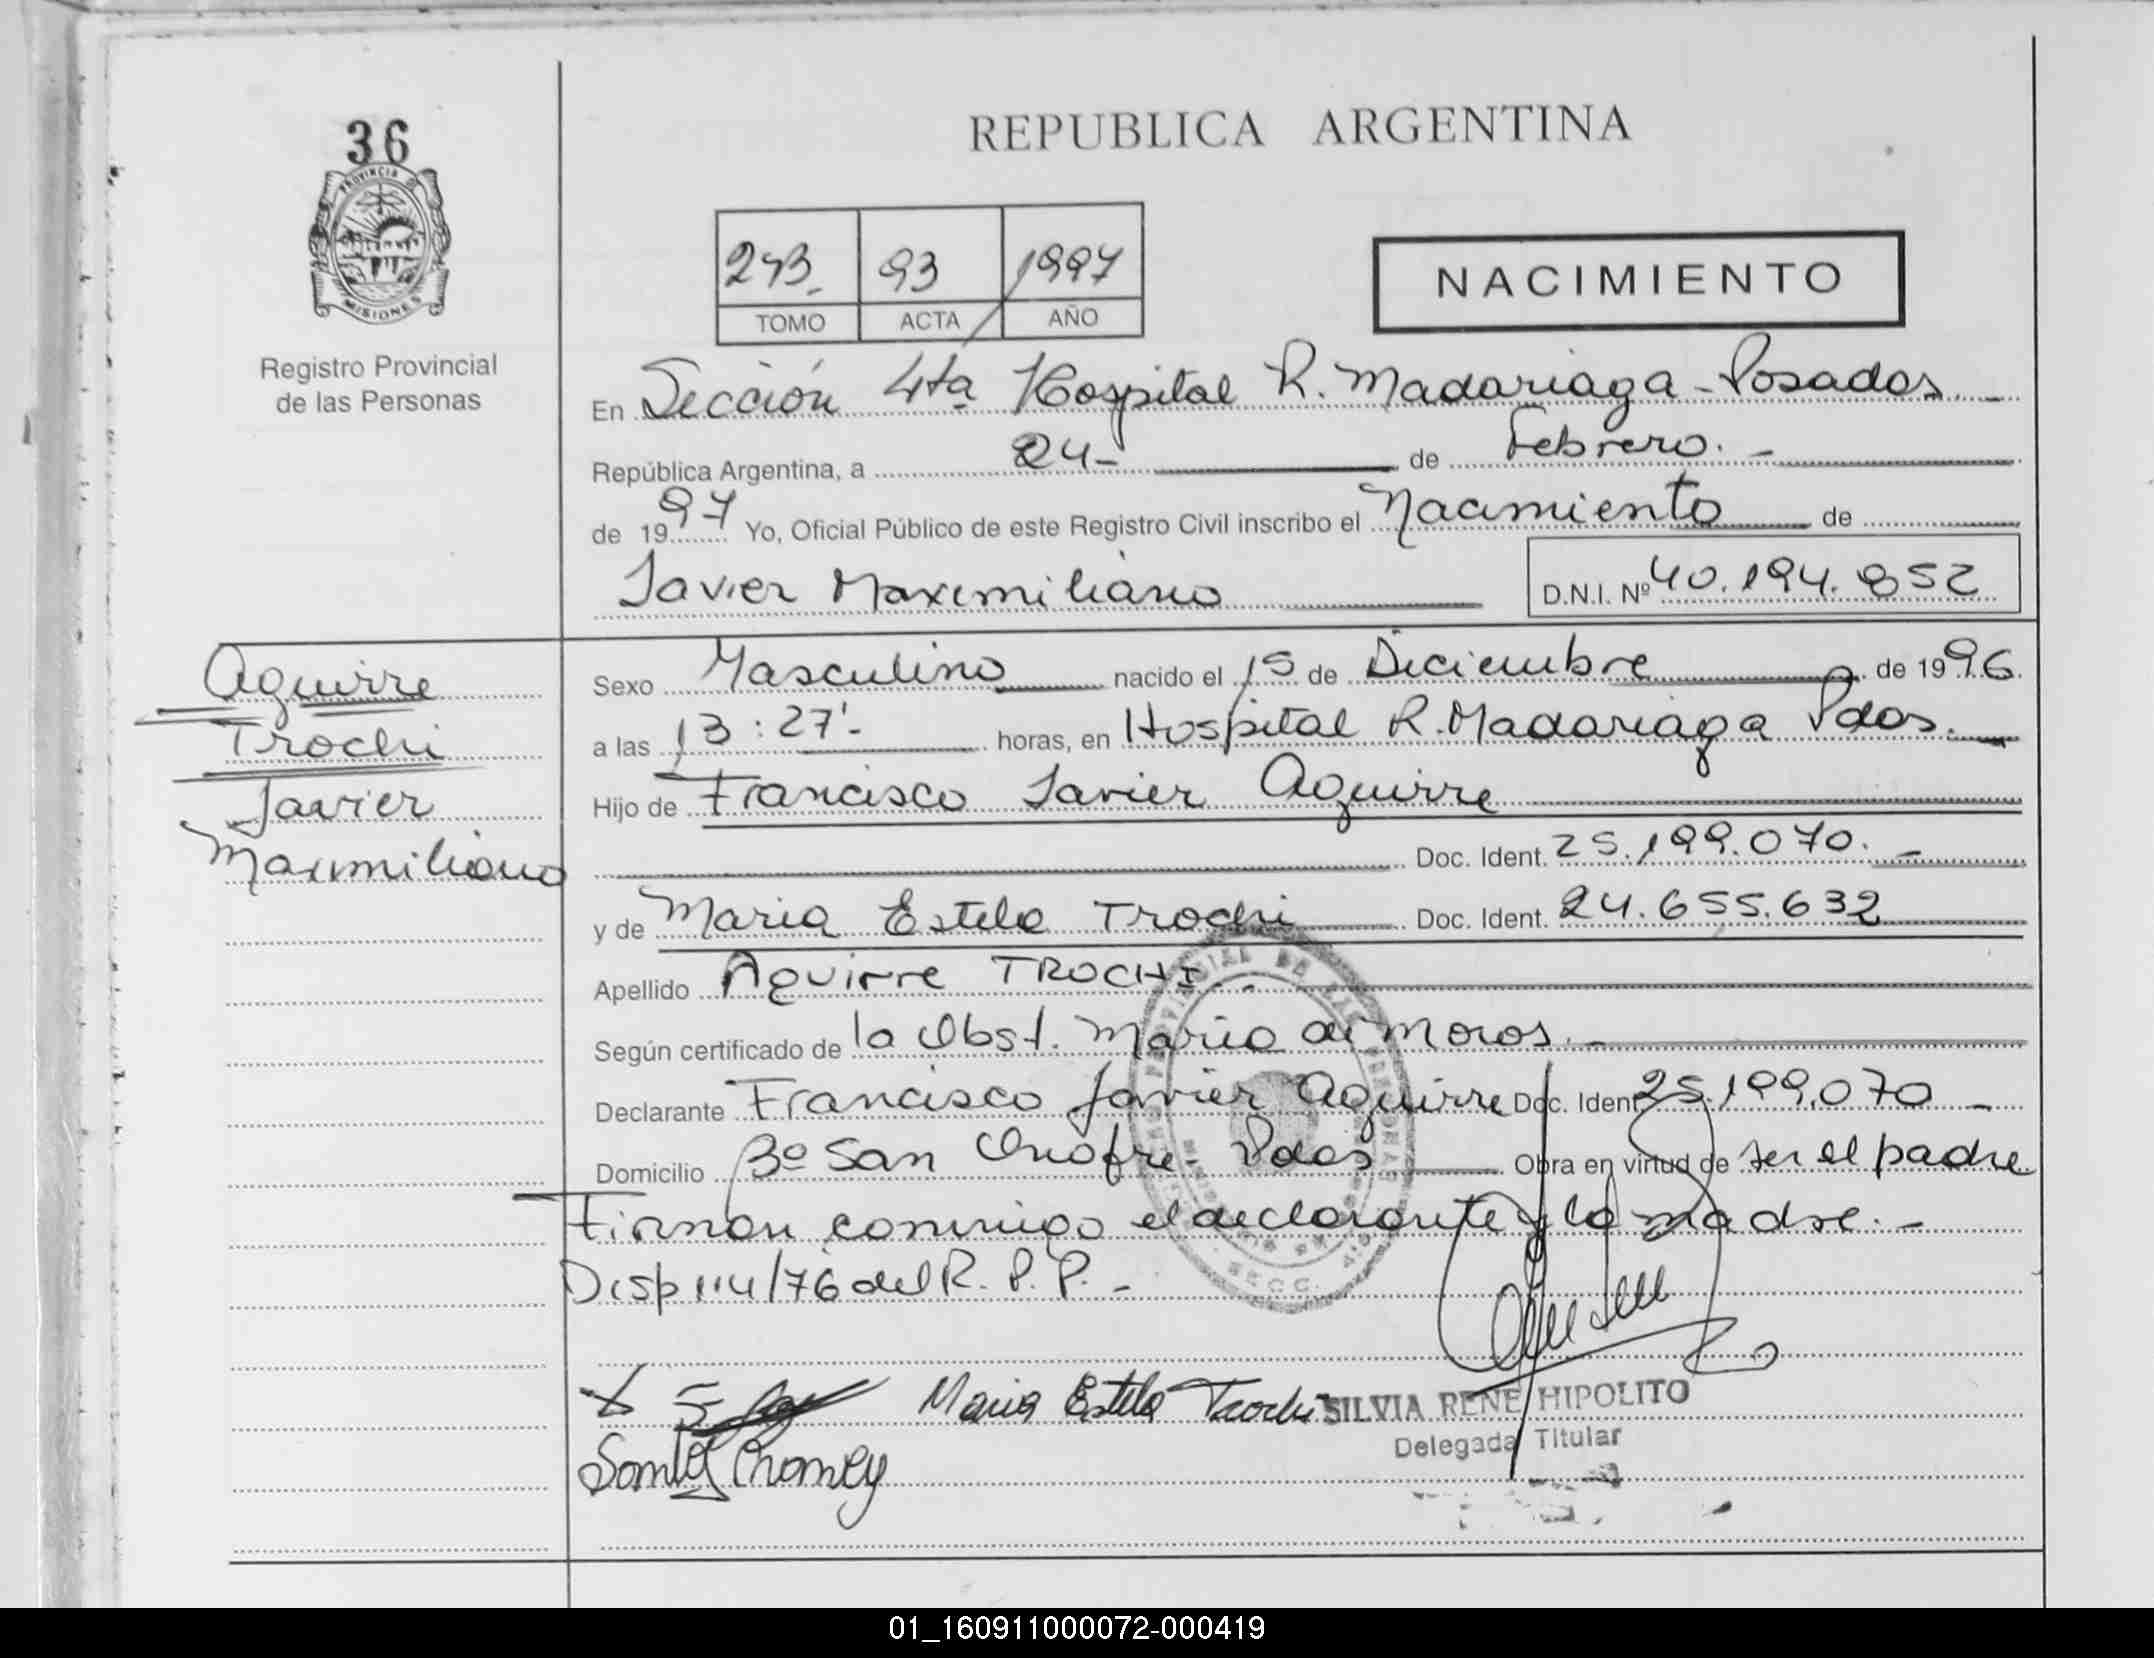 36
PROVINCIA DE MISIONES
Registro Provincial
de las Personas
REPUBLICA ARGENTINA
243. 93 1997
TOMO ACTA AÑO
NACIMIENTO
En Sección 4ta Hospital R. Madariaga - Posadas.
República Argentina, a 24- de Febrero. -
de 1997 Yo, Oficial Público de este Registro Civil inscribo el Nacimiento de
Javier Maximiliano D.N.I. Nº 40.194.852
Aguirre
Trochi
Javier
Maximiliano
Sexo Masculino nacido el 15 de Diciembre de 1996
a las 13:27'- horas, en Hospital R. Madariaga Pdas. -
Hijo de Francisco Javier Aguirre
Doc. Ident. 25.199.070. -
y de Maria Estela Trochi Doc. Ident. 24.655.632
Apellido Aguirre TROCHI. -
Según certificado de la Obst. Maria de Moros. -
Declarante Francisco Javier Aguirre Doc. Ident. 25.199.070 -
Domicilio Bº San Onofre - Pdas Obra en virtud de ser el padre
Firman conmigo el declarante y la madre. -
Disp 114/76 del R.P.P. -
Maria Estela Trochi
SILVIA RENE HIPOLITO
Delegada Titular
01_160911000072-000419